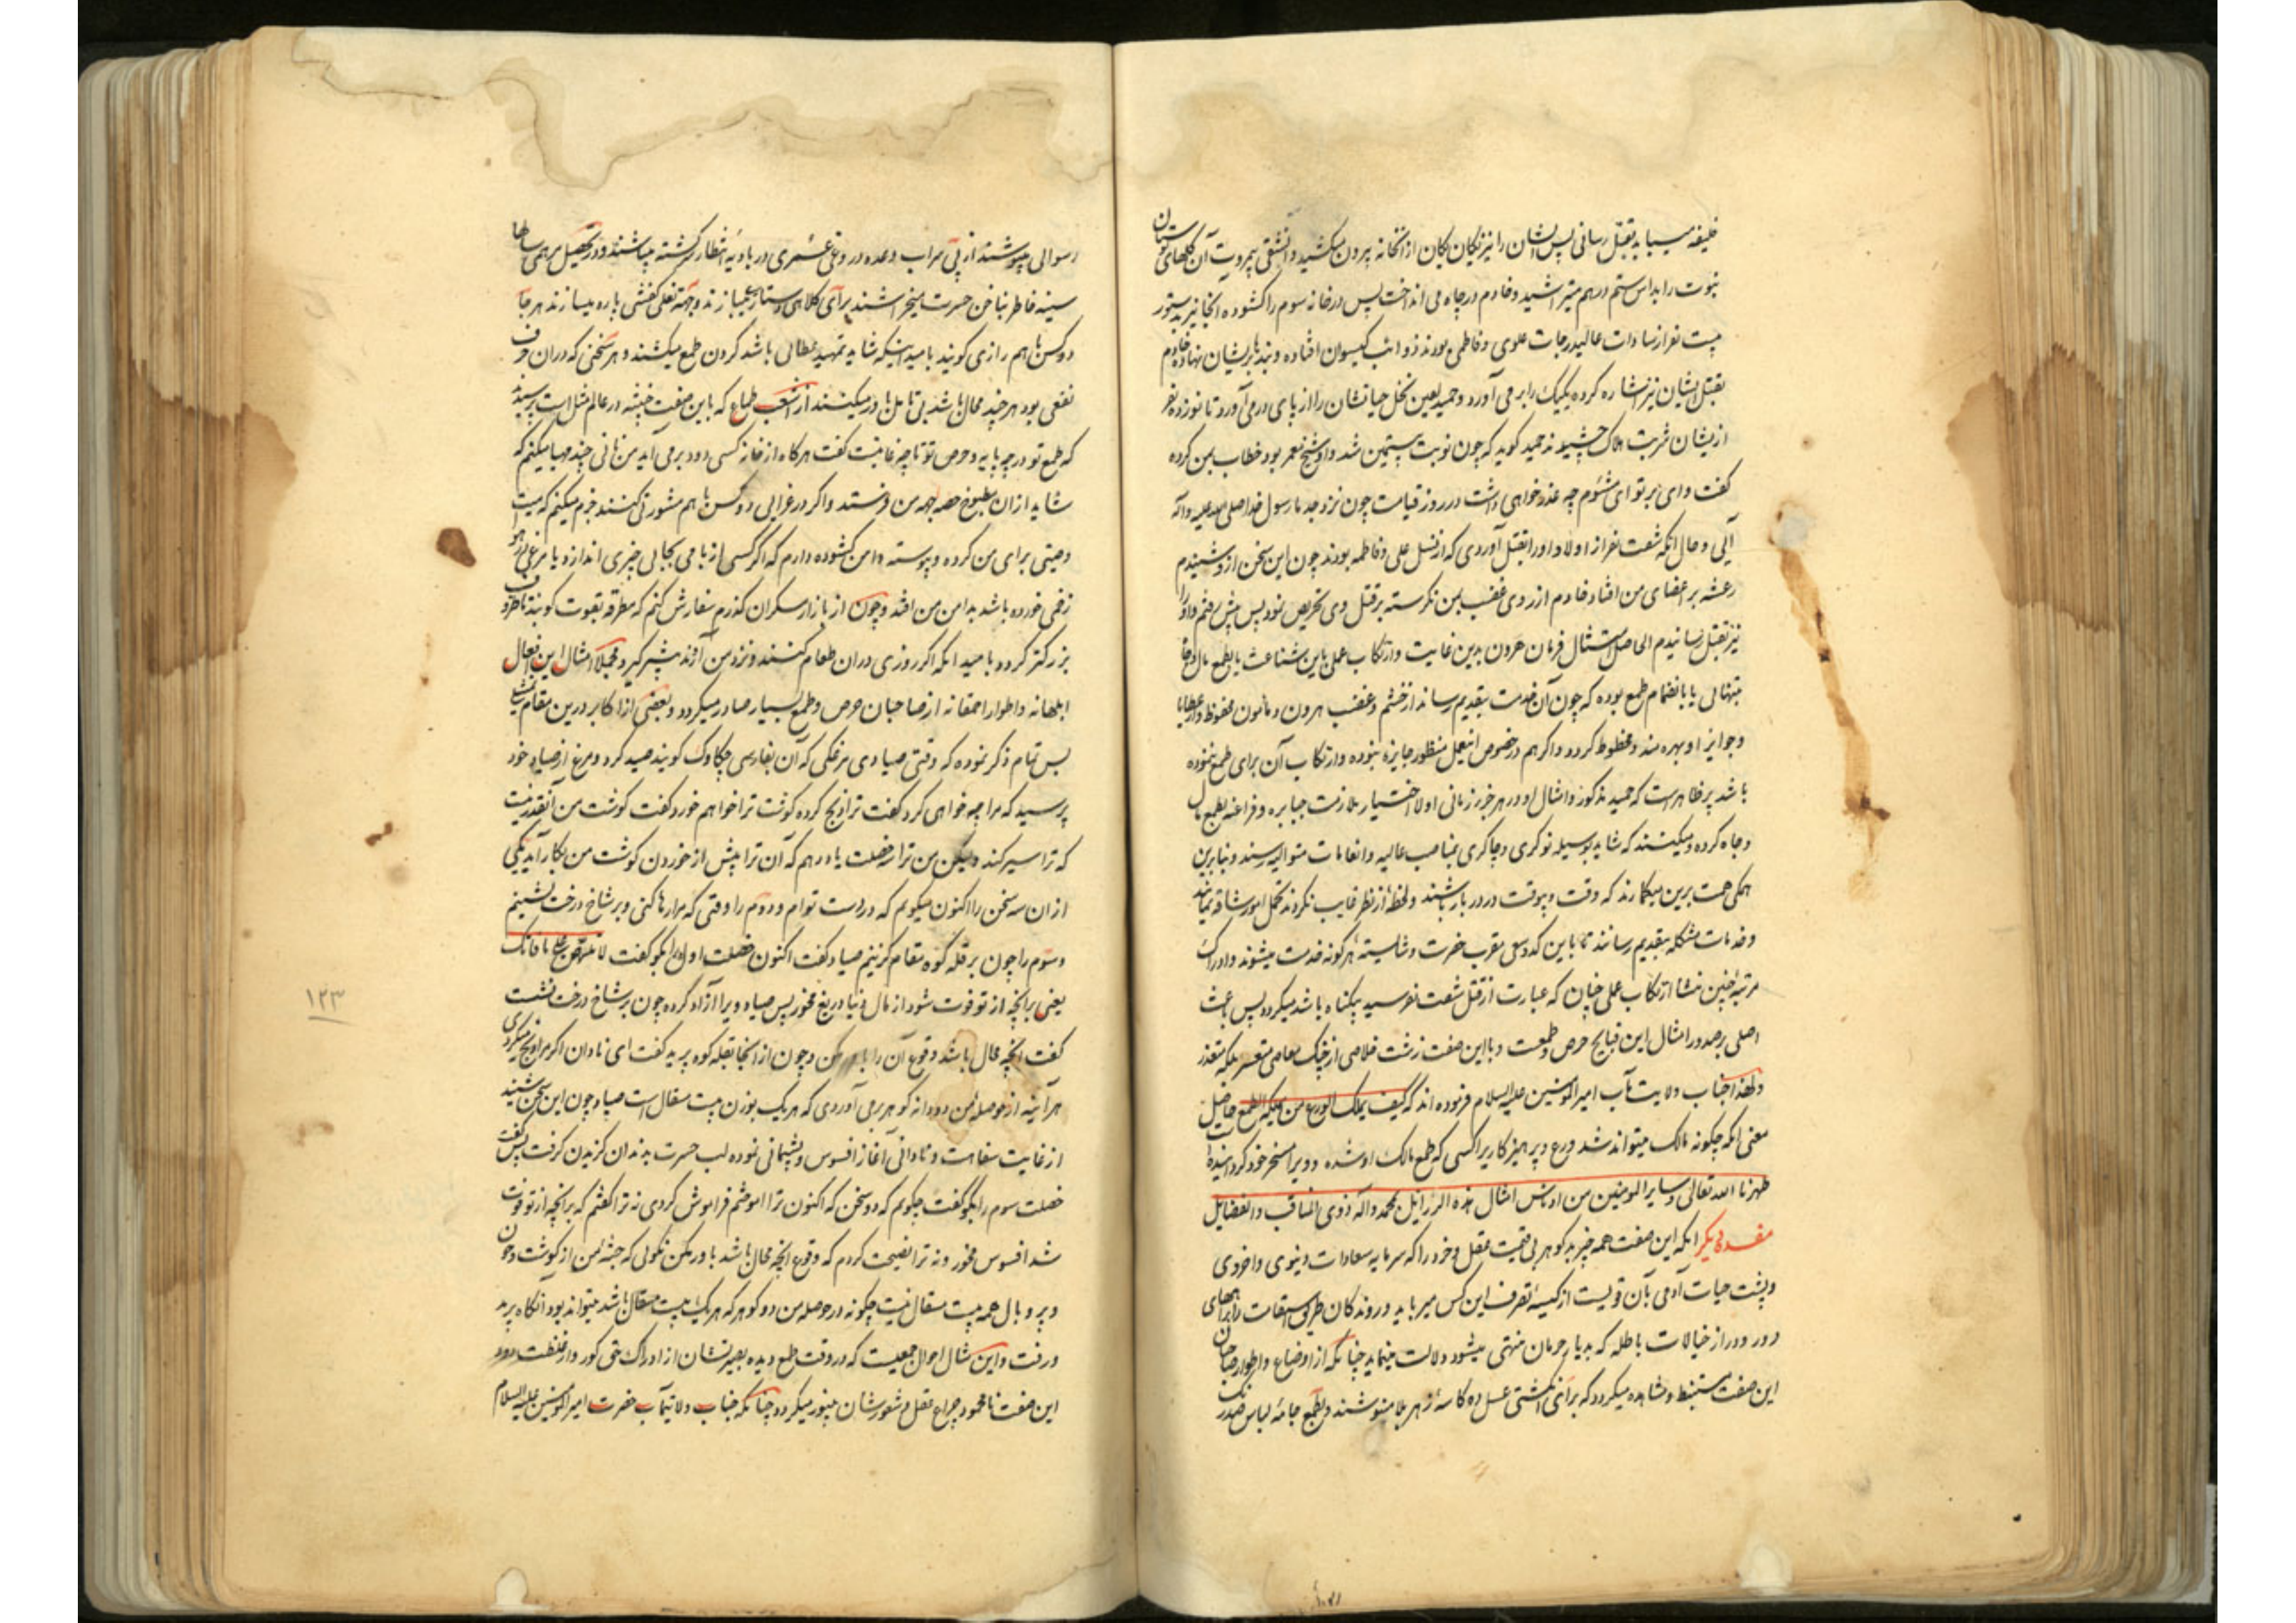 خلیفه میباید بقتل رسانی پس ایشان را نیز یکان یکان از آنخانه بیرون میکشید و آنشقی بیمروت آن گلهای بوستان
نبوت را بداس ستم درهم میتراشید و خادم در چاه می انداخت پس در خانه سوم را کشوده آنجا نیز بدستور
بیست نفر از سادات عالیدرجات علوی و فاطمی بودند ذوائب کیسوان افتاده و بندها بر ایشان نهاده خادم
بقتل ایشان نیز اشاره کرده یکیک را بر می آورد و حمید لعین نخل حیاتشان را از پای در می آورد تا نوزده نفر
ازیشان شربت هلاک چشیدند حمید کوید که چون نوبت به بیستمین شد و او شیخ معمر بود خطاب بمن کرده
کفت وای بر تو ای مشئوم چه عذر خواهی داشت در روز قیامت چون نزد جد ما رسول خدا صلی الله علیه و آله
آیی و حال آنکه شصت نفر از اولاد او را بقتل آوردی که از نسل علی و فاطمه بودند چون این سخن از و شنیدم
رعشه بر اعضای من افتاد خادم از روی غضب بمن نکریسته بر قتل وی تحریص نمود پس پیش رفتم و او را
نیز بقتل رسانیدم الحاصل امتثال فرمان هرون بدین غایت و ارتکاب عملی باین شناعت یا بطمع مال و جاه
بتنهائی یا بانضمام طمع بوده که چون آن خدمت بتقدیم رساند از خشم و غضب هرون مامون و محفوظ و از عطایا
و جوایز او بهره مند و محظوظ کردد و اکر هم در خصوص اینعمل منظور جایزه نبوده و ارتکاب آن برای طمع ننموده
باشد پر ظاهر است که حمید مذکور و امثال او در هر جزو زمانی اولا اختیار ملازمت جبابره و فراعنه بطمع مال
و جاه کرده و میکنند که شاید بوسیله نوکری و چاکری بمناصب عالیه و انعامات متوالیه رسند و بنابرین
همکی همت برین میکمارند که وقت و بیوقت در دربار باشند و لحظه از نظر غایب نکردند تحمل امور شاقه نمایند
و خدمات مشکله بتقدیم رسانند تا باین کد و سعی مقرب حضرت و شایسته هر کونه خدمت میشوند و ادراک
مرتبه چنین منشا ارتکاب عملی چنان که عبارت از قتل شصت نفر سید بیکناه باشد میکردد پس باعث
اصلی بر صدور امثال این قبایح حرص و طمعست و با این صفت زشت خلاصی از چنک معاصی متعسر بلکه متعذر
و لهذا جناب ولایت مآب امیر المومنین علیه السلام فرموده اند که کیف یملک الورع من یملکه الطمع حاصل
معنی آنکه چکونه مالک میتواند شد ورع و پرهیزکاریرا کسی که طمع مالک او شده و ویرا مسخر خود کردانیده است
طهرنا الله تعالی و سایر المومنین من ادناس امثال هذه الرذایل بمحمد و آله ذوی المناقب و الفضایل
مفسده دیکر آنکه این صفت همه چیز بد کوهر بی قیمت عقل و خرد را که سرمایه سعادات دنیوی و اخروی
و پشت حیات آدمی بآن قویست از کیسه تصرف این کس میرباید و روندکان طریق استقامت را براههای
دور و دراز خیالات باطله که بدیار حرمان منتهی میشود دلالت مینماید چنانکه از اوضاع و اطوار صاحبان
این صفت مستنبط و مشاهده میکردد که برای انکشتی عسل ده کاسه زهر بلا مینوشند و بطمع جامه لباس صد رنک
رسوائی میپوشند از پی سراب وعده دروغی عمری در بادیه انتظار سرکشته میباشند و در تحصیل مرهمی سالها
سینه خاطر بناخن حسرت میخراشند برای کلاهی دستار میبازند و بجهة نعلی کفشی پاره میسازند هر جا
دو کس با هم رازی کویند بامید اینکه شاید تمهید مطالبی باشد کردن طمع میکشند و هر سخنی که در آن حرف
نفعی بود هر چند محال باشد بی تامل باور میکنند از اشعب طماع که باین صفت خبیثه در عالم مثل است پرسیدند
که طمع تو در چه پایه و حرص تو تا چه غایتست کفت هرکاه از خانه کسی دود بر می آید من نانی چند مهیا میکنم که
شاید از آن مطبوخ حصه بجهة من فرستند و اکر در عزائی دو کس با هم مشورتی کنند جزم میکنم که میت
وصیتی برای من کرده و پیوسته دامن کشوده دارم که اکر کسی از بامی بجائی چیزی اندازد یا مرغی در هوا
زخمی خورده باشد بدامن من افتد و چون از بازار مسکران کذرم سفارش کنم که مطرقه بقوت کوبند تا ظرف
بزرکتر کردد بامید آنکه اکر روزی در آن طعام کنند و نزد من آرند بیشتر کیرد مجملا امثال این افعال
ابلهانه و اطوار احمقانه از صاحبان حرص و طمع بسیار صادر میکردد و بعضی از اکابر درین مقام تمثیلی
بس تمام ذکر نموده که وقتی صیادی مرغکی که آن بفارسی چکاوک کویند صید کرد و مرغ از صیاد خود
پرسید که مرا چه خواهی کرد کفت ترا ذبح کرده کوشت ترا خواهم خورد کفت کوشت من آنقدر نیست
که ترا سیر کند و لیکن من ترا سه خصلت یاد دهم که آن ترا بیش از خوردن کوشت من بکار آید یکی
از آن سه سخن را اکنون میکویم که در دست توام و دوم را وقتی که مرا رها کنی و بر شاخ درخت نشینم
و سوم را چون بر قله کوه مقام کزینم صیاد کفت اکنون خصلت اول را بکو کفت لا تلهفن علی ما فاتک
یعنی بر آنچه از تو فوت شود از مال دنیا دریغ مخور پس صیاد ویرا آزاد کرده چون بر شاخ درخت نشست
کفت آنچه محال باشد وقوع آن را باور مکن و چون از آنجا بقله کوه پرید کفت ای نادان اکر مرا ذبح میکردی
هر آینه از حوصله من دو دانه کوهر بر می آوردی که هر یک بوزن بیست مثقال است صیاد چون این سخن شنید
از غایت سفاهت و نادانی آغاز افسوس و پشیمانی نموده لب حسرت بدندان کزیدن کرفت پس کفت
خصلت سوم را بکو کفت چکویم که دو سخن که اکنون ترا آموختم فراموش کردی نه ترا کفتم که بر آنچه از تو فوت
شد افسوس مخور و نه ترا نصیحت کردم که وقوع آنچه محال باشد باور مکن نکوئی که جثه من از کوشت و خون
و پر و بال همه بیست مثقال نیست چکونه در حوصله من دو کوهر که هر یک بیست مثقال باشد میتواند بود آنکاه پرید
و رفت و این مثال احوال جمعیست که در وقت طمع دیده بصیرتشان از ادراک حق کور و از ظلمت دود
این صفت نامحمود چراغ عقل و شعورشان بینور میکردد چنانکه جناب ولایتمآب حضرت امیر المومنین علیه السلام
۱۲۳